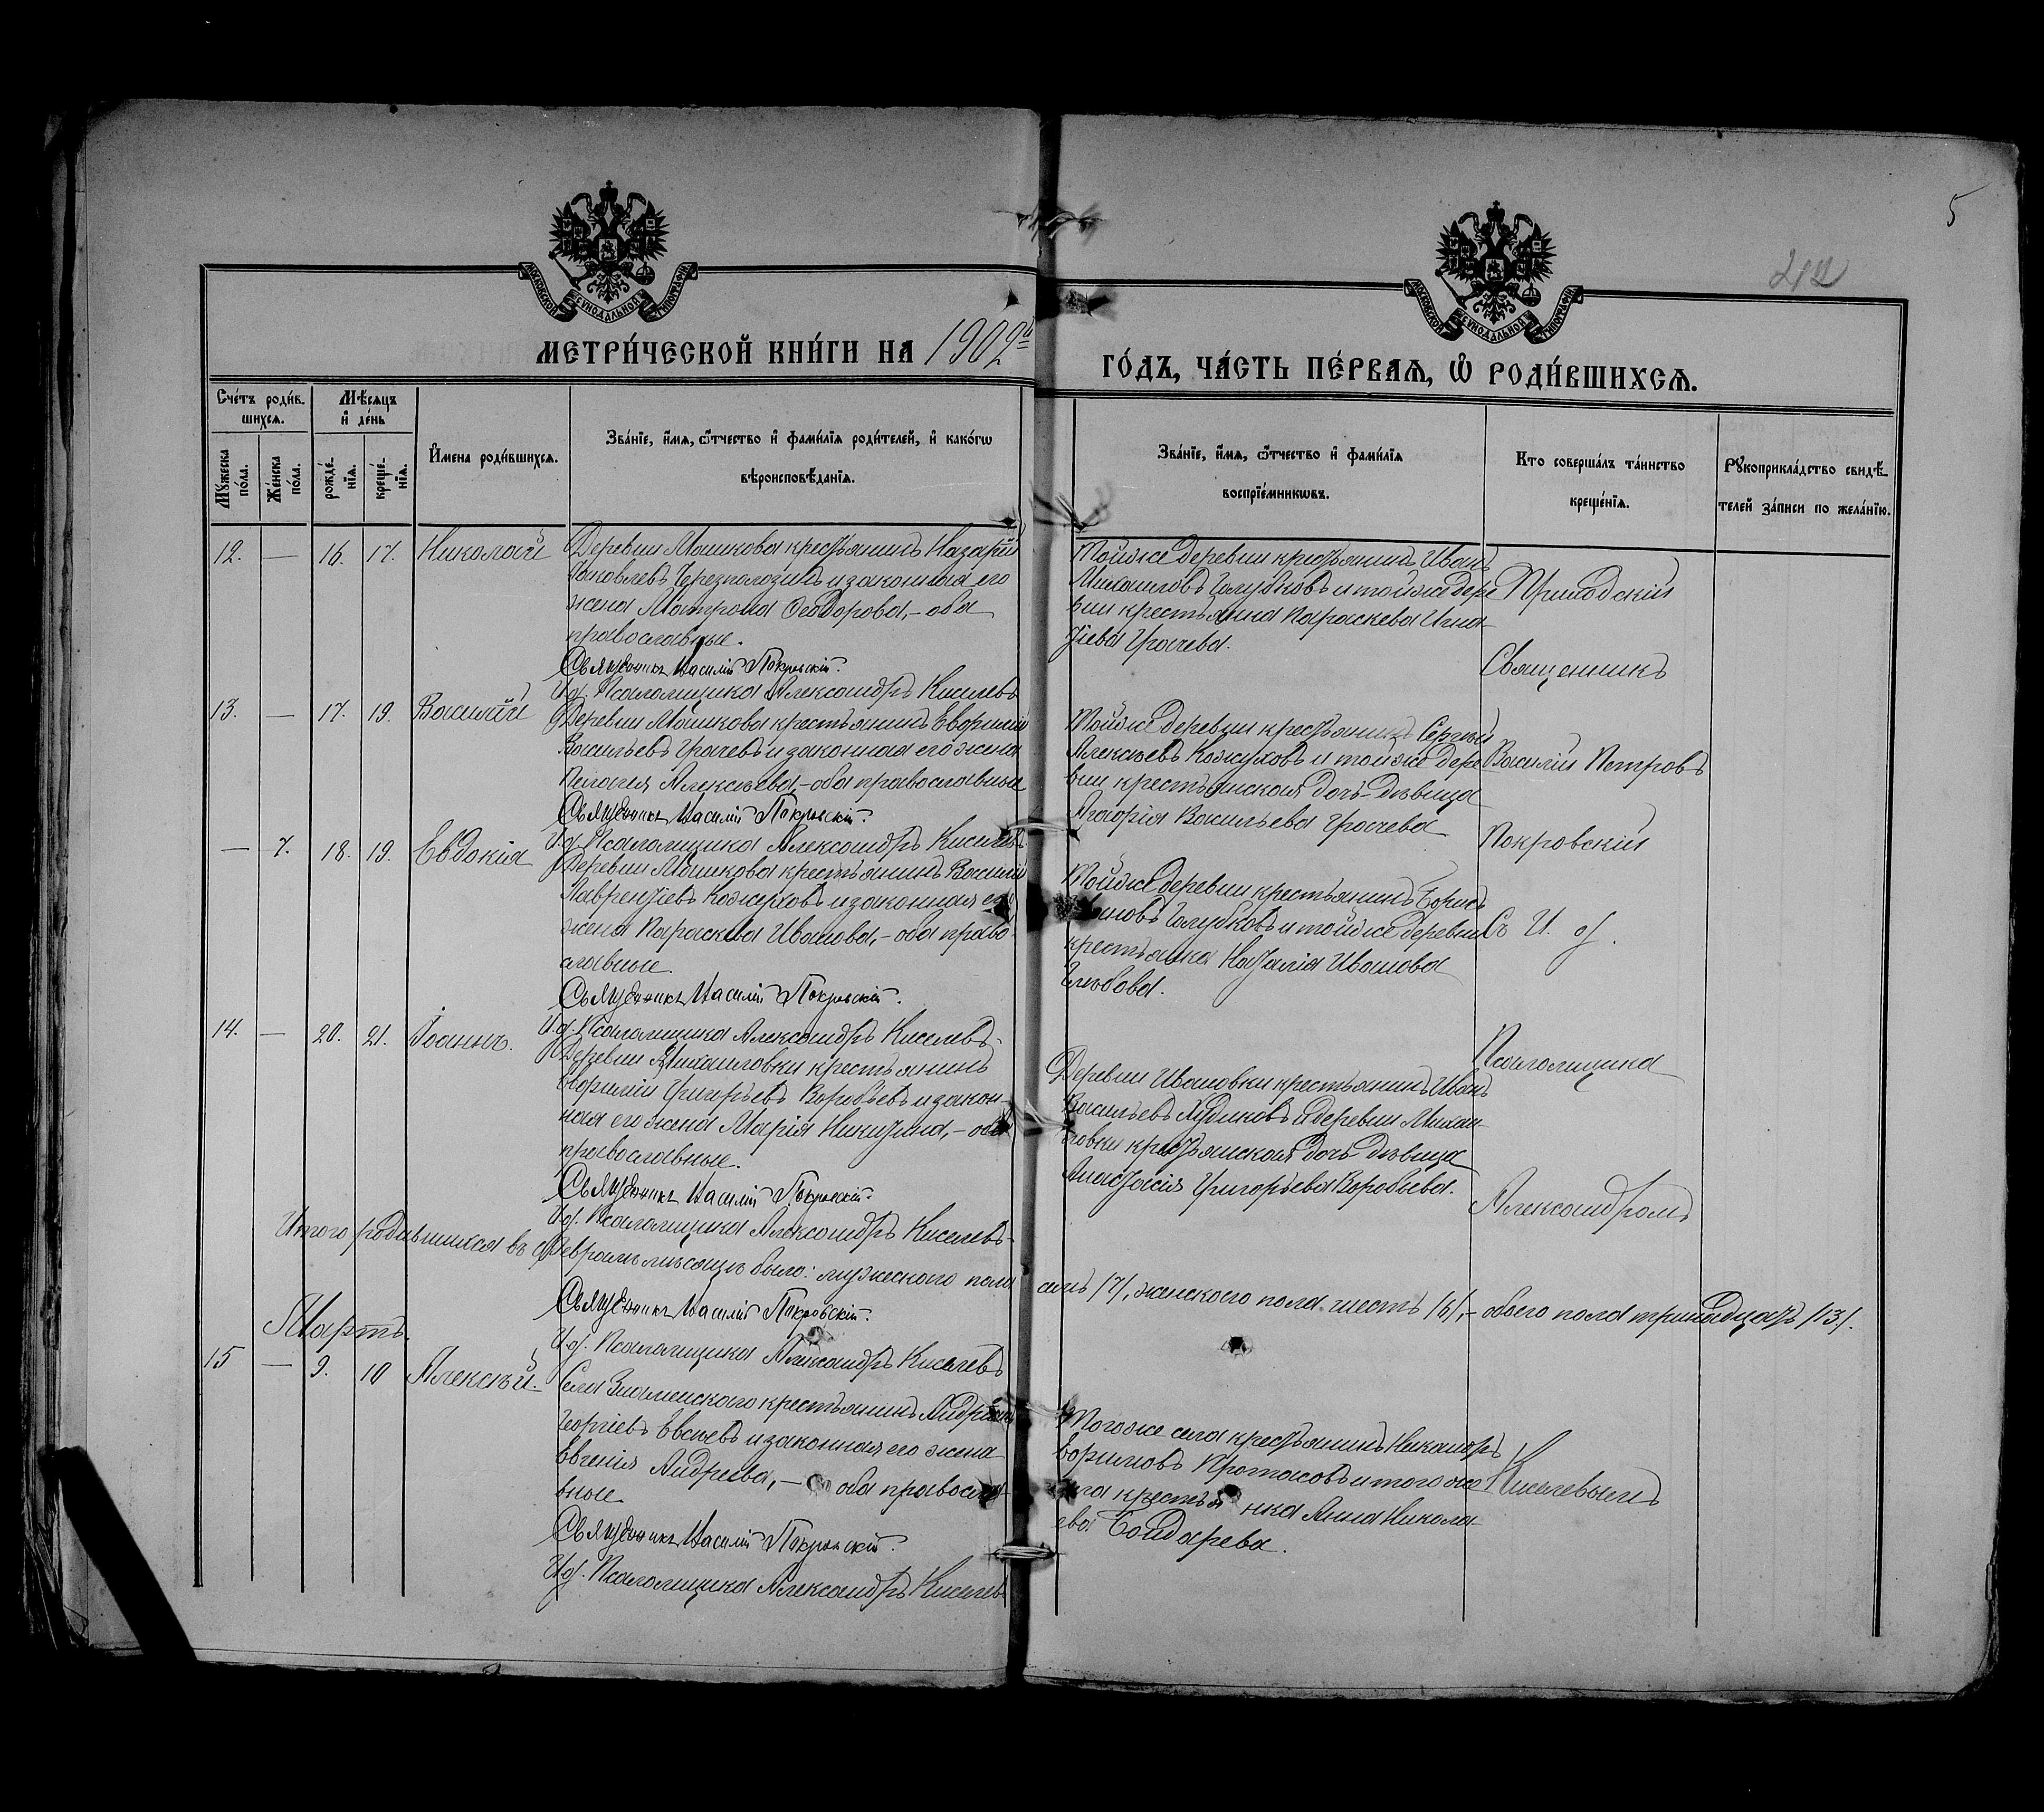 5
212
МОСКОВСКОЙ СѴНОДАЛЬНОЙ ТИПОГРАФІИ
МОСКОВСКОЙ СѴНОДАЛЬНОЙ ТИПОГРАФІИ
МЕТРИ́ЧЕСКОЙ КНИ́ГИ НА 1902й
ГО́ДЪ, ЧА́СТЬ ПЕ́РВАѦ, Ѡ҆ РОДИ́ВШИХСѦ.
Сче́тъ роди́в-
шихсѧ.
Мꙋжеска по́ла.
Же́нска по́ла.
Мѣ́сѧцъ
и҆ де́нь
рожде́-
нїѧ.
креще́-
нїѧ.
И҆мена роди́вшихсѧ.
Зва́нїе, и҆́мѧ, ѻ҆́тчество и҆ фами́лїѧ роди́телей, и҆ како́гѡ
вѣроисповѣ́данїѧ.
Зва́нїе, и҆́мѧ, ѻ҆́тчество и҆ фами́лїѧ
воспрїе́мникѡвъ.
Кто соверша́лъ та́инство
креще́нїѧ.
Рꙋкоприкла́дство свидѣ́-
телей за́писи по жела́нїю.
12. — 16. 17. Николай
Деревни Машкова крестьянинъ Назарій
Яковлевъ Черезполозинъ и законная его
жена Матрона Ѳеодорова,- оба
православные.
Священникъ Василій Покровскій.
И.д. Псаломщика Александръ Киселевъ
Тойже деревни крестьянинъ Иванъ
Михаиловъ Голубковъ и тойже дере
вни крестьянка Параскева Игна-
тіева Грачева.
13. — 17. 19. Василій
Деревни Машкова крестьянинъ Евфимій
Васильевъ Грачевъ и законная его жена
Пелагія Алексѣева,- оба православные
Священникъ Василій Покровскій.
И.д. Псаломщика Александръ Киселевъ.
Тойже деревни крестьянинъ Сергѣй
Алексѣевъ Кожуховъ и тойже дере
вни крестьянская дочь-дѣвица
Агафія Васильева Грачева
— 7. 18. 19. Евдокія
Деревни Машкова крестьянинъ Василій
Лаврентіевъ Кожуховъ и законная его
жена Параскева Иванова,- оба право
славные.
Священникъ Василій Покровскій.
И.д. Псаломщика Александръ Киселевъ.
Тойже деревни крестьянинъ Борисъ
Голубковъ и тойже деревни
крестьянка Наталія Иванова
Глѣбова.
14. — 20. 21. Іоаннъ.
Деревни Михаиловки крестьянинъ
Евфимій Григорьевъ Воробьевъ и закон-
ная его жена Марія Никитина,- оба
православные.
Священникъ Василій Покровскій.
И.д. Псаломщика Александръ Киселевъ.
Деревни Ивановки крестьянинъ Иванъ
Васильевъ Худиковъ и деревни Михаи
ловки крестьянская дочь-дѣвица
Анастасія Григорьева Воробьева.
Итого родившихся въ Февралѣ мѣсяцѣ было: мужескаго пола
семь /7/, женскаго пола шесть /6/,- обоего пола тринадцать /13/.
Священникъ Василій Покровскій.
И.д. Псаломщика Александръ Киселевъ
Мартъ.
15 — 9. 10 Алексѣй.
Села Знаменскаго крестьянинъ
Георгіевъ Евсѣевъ и законная его жена
Евгенія Андреева,- оба правосла
вные
Священникъ Василій Покровскій.
И.д. Псаломщика Александръ Киселевъ
Тогоже села крестьянинъ Никаноръ
Ефимовъ Протасовъ и тогоже
села крестьянка Анна Никола-
ева Бондарева.
Приходскій
Священникъ
Василій Петровъ
Покровскій
Съ И. д.
Псаломщика
Александромъ
Киселевымъ